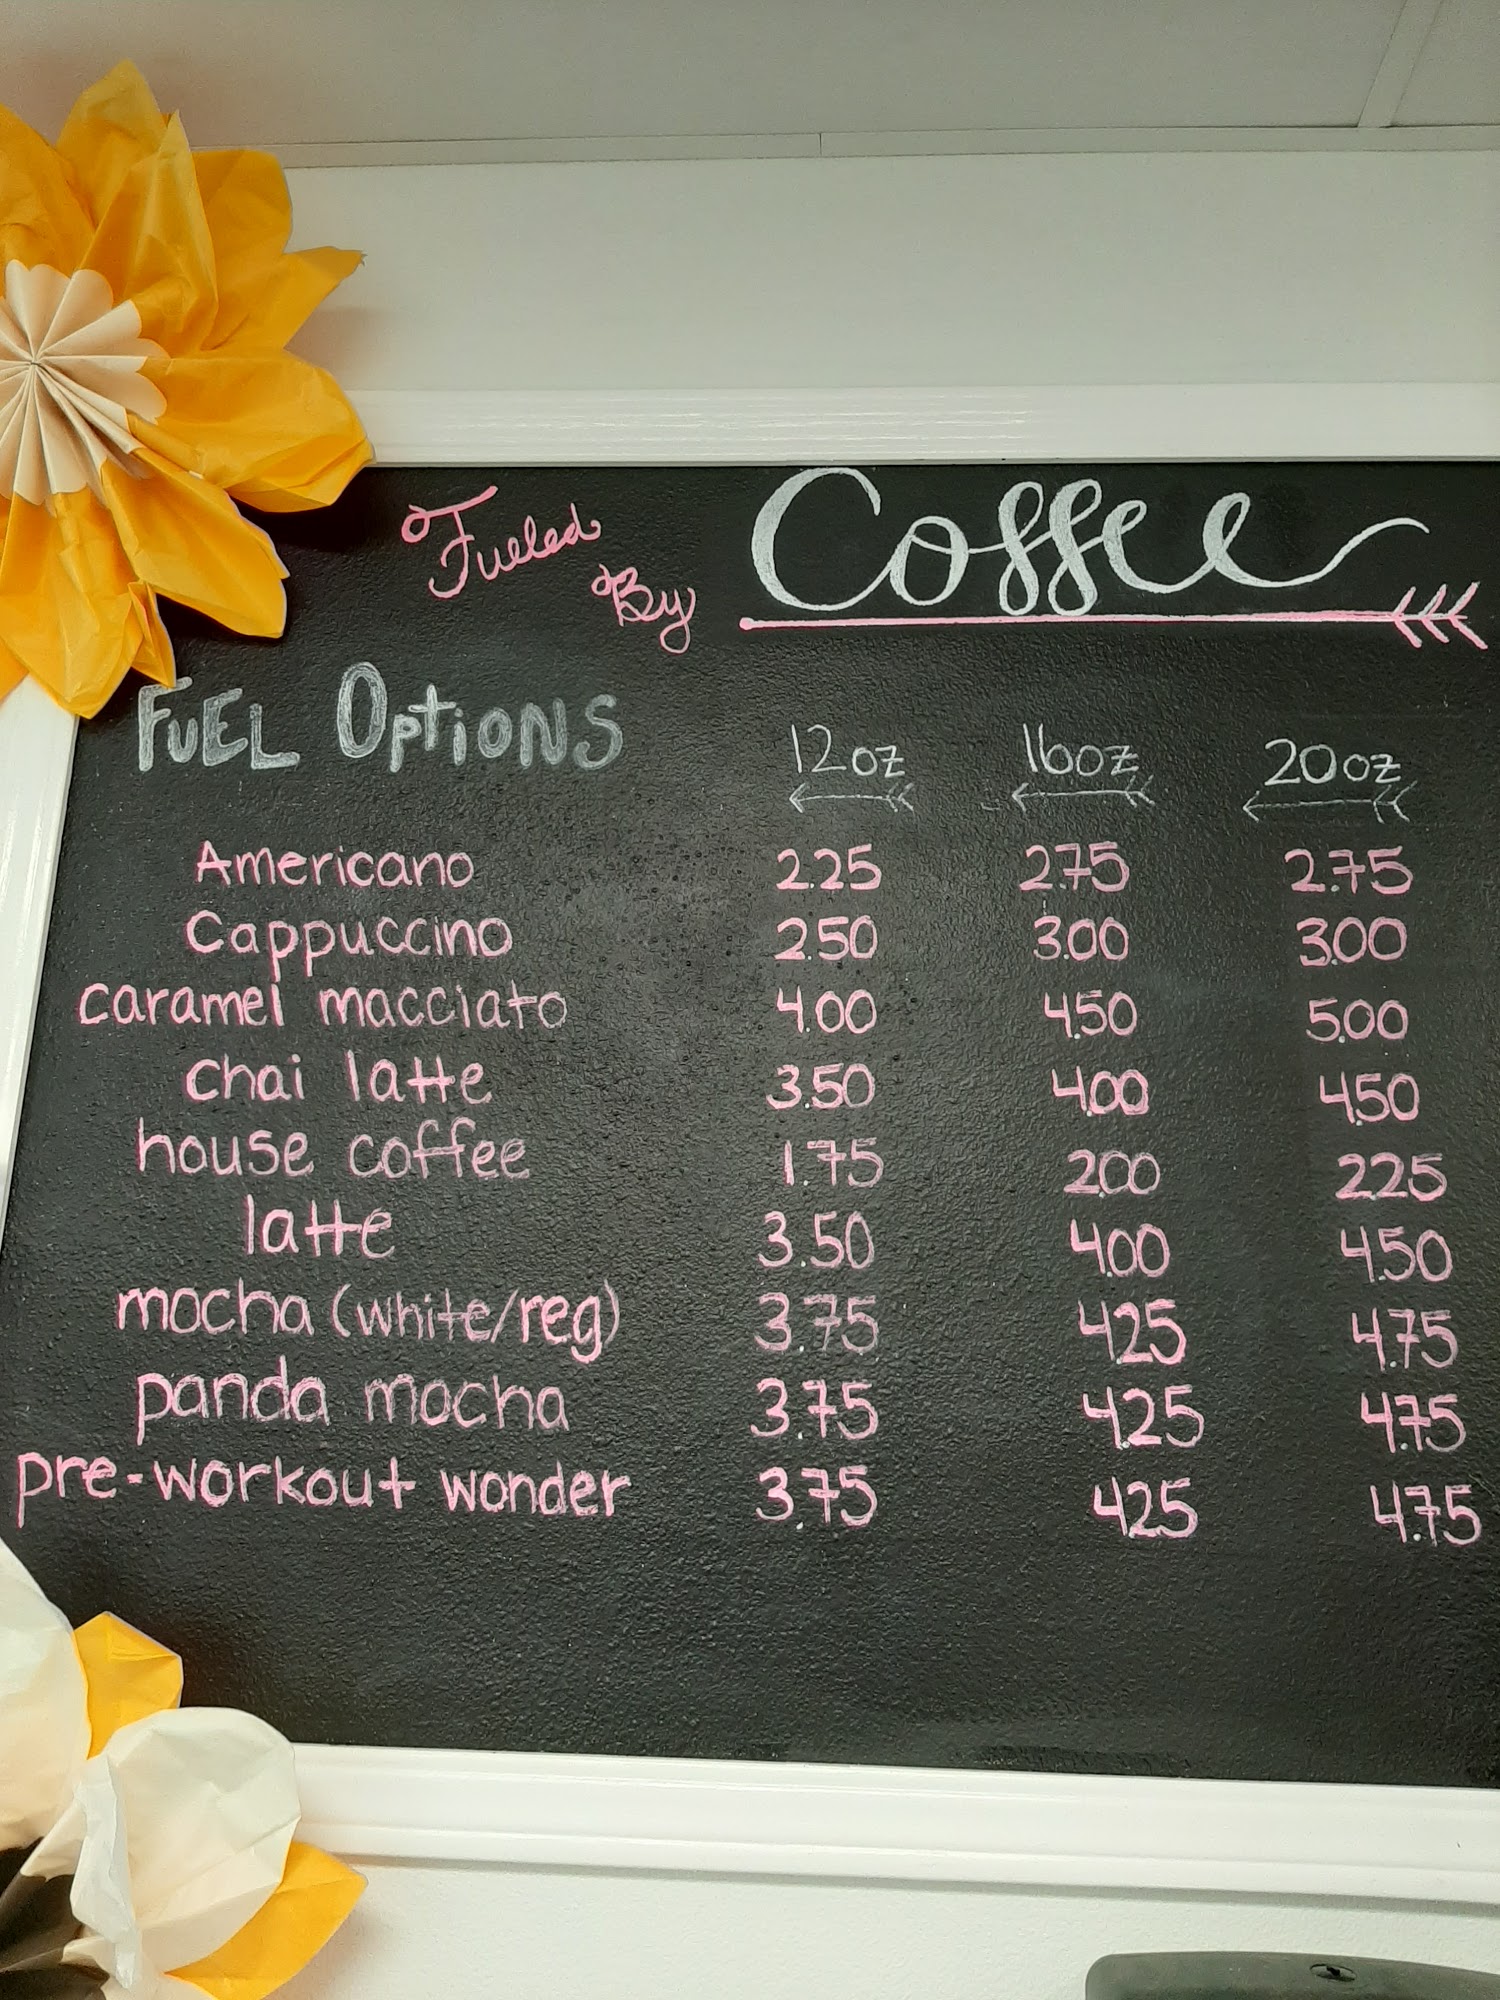 Fueled By Coffee
FUEL OPtiONS 12oz 16oz 20oz
Americano 2.25 2.75 2.75
Cappuccino 2.50 3.00 3.00
caramel macciato 4.00 4.50 5.00
chai latte 3.50 4.00 4.50
house coffee 1.75 2.00 2.25
latte 3.50 4.00 4.50
mocha (white/reg) 3.75 4.25 4.75
panda mocha 3.75 4.25 4.75
pre-workout wonder 3.75 4.25 4.75